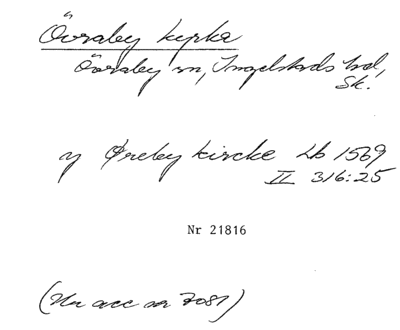 Övraby kyrka
Övraby sn, Ingelstads hd,
Sk.
y Øreby kircke Lb 1569
II 316:25
Nr 21816
(Un acc nr 7081)